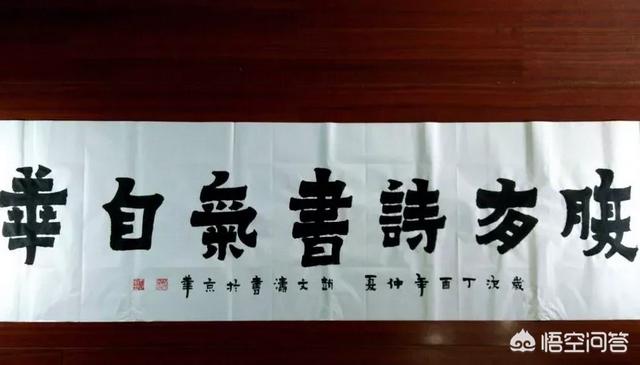 腹有詩書氣自華
歲次丁酉年仲夏 書於京華
悟空问答